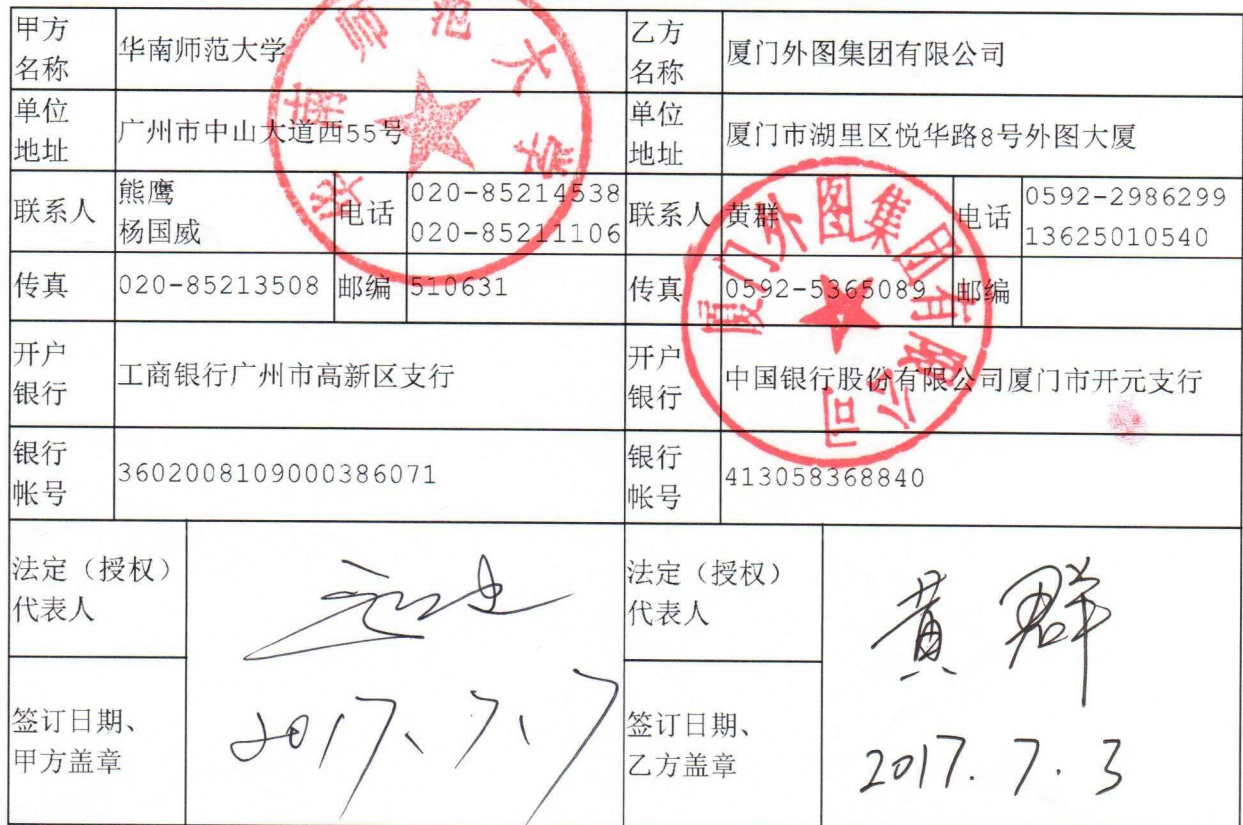 甲方
名称
华南师范大学
乙方
名称
厦门外图集团有限公司
单位
地址
广州市中山大道西55号
单位
地址
厦门市湖里区悦华路8号外图大厦
联系人
熊鹰
杨国威
电话
020-85214538
020-85211106
联系人
黄群
电话
0592-2986299
13625010540
传真
020-85213508
邮编
510631
传真
0592-5365089
邮编
开户
银行
工商银行广州市高新区支行
开户
银行
中国银行股份有限公司厦门市开元支行
银行
帐号
3602008109000386071
银行
帐号
413058368840
法定（授权）
代表人
法定（授权）
代表人
黄群
签订日期、
甲方盖章
2017、7、7
签订日期、
乙方盖章
2017.7.3
华南师范大学
厦门外图集团有限公司